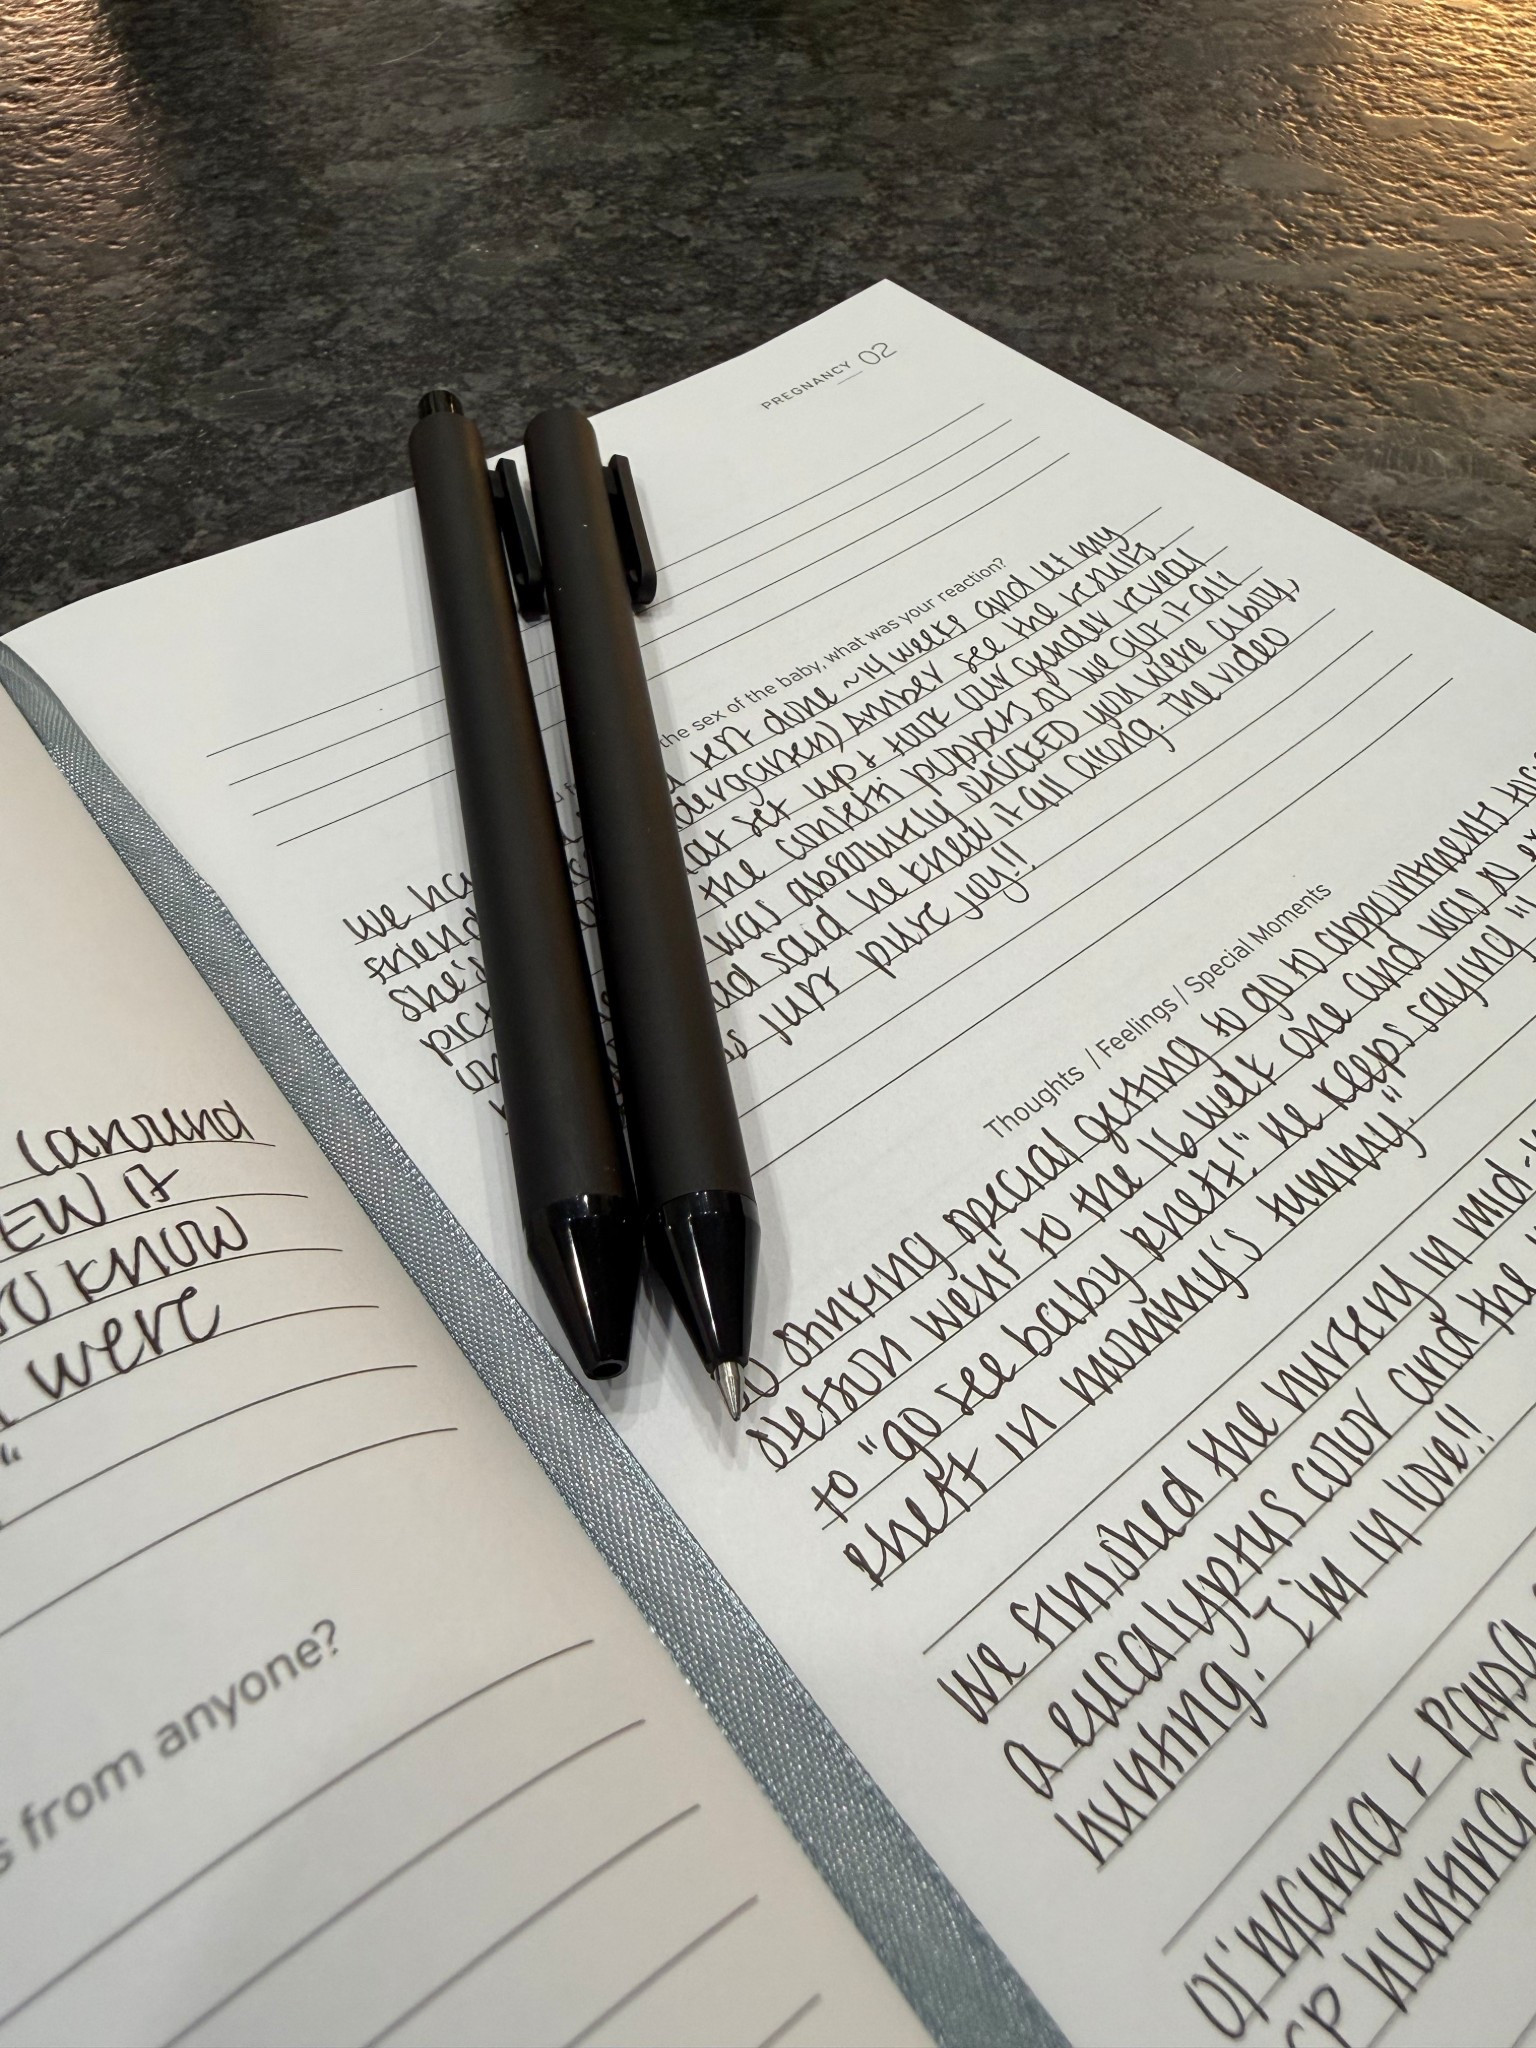 (around
EW it
to know
were
s from anyone?
PREGNANCY 02
the sex of the baby, what was your reaction?
we ha test done ~14 weeks and let my
friend dergarten) Amber see the results
she's set up & took our gender reveal
pict the confetti poppers so we got it all
was absolutely SHOCKED you were a boy,
ad said he knew it all along. The video
just pure joy!!
Thoughts / Feelings / Special Moments
special getting to go to appointments
went to the 16 week one and was so
to "go see baby Rhett!" He keeps saying "
Rhett in mommy's tummy"
we finished the nursery in mid-
a eucalyptus color and the
hunting. I'm in love!!
mama & Papa
hunting